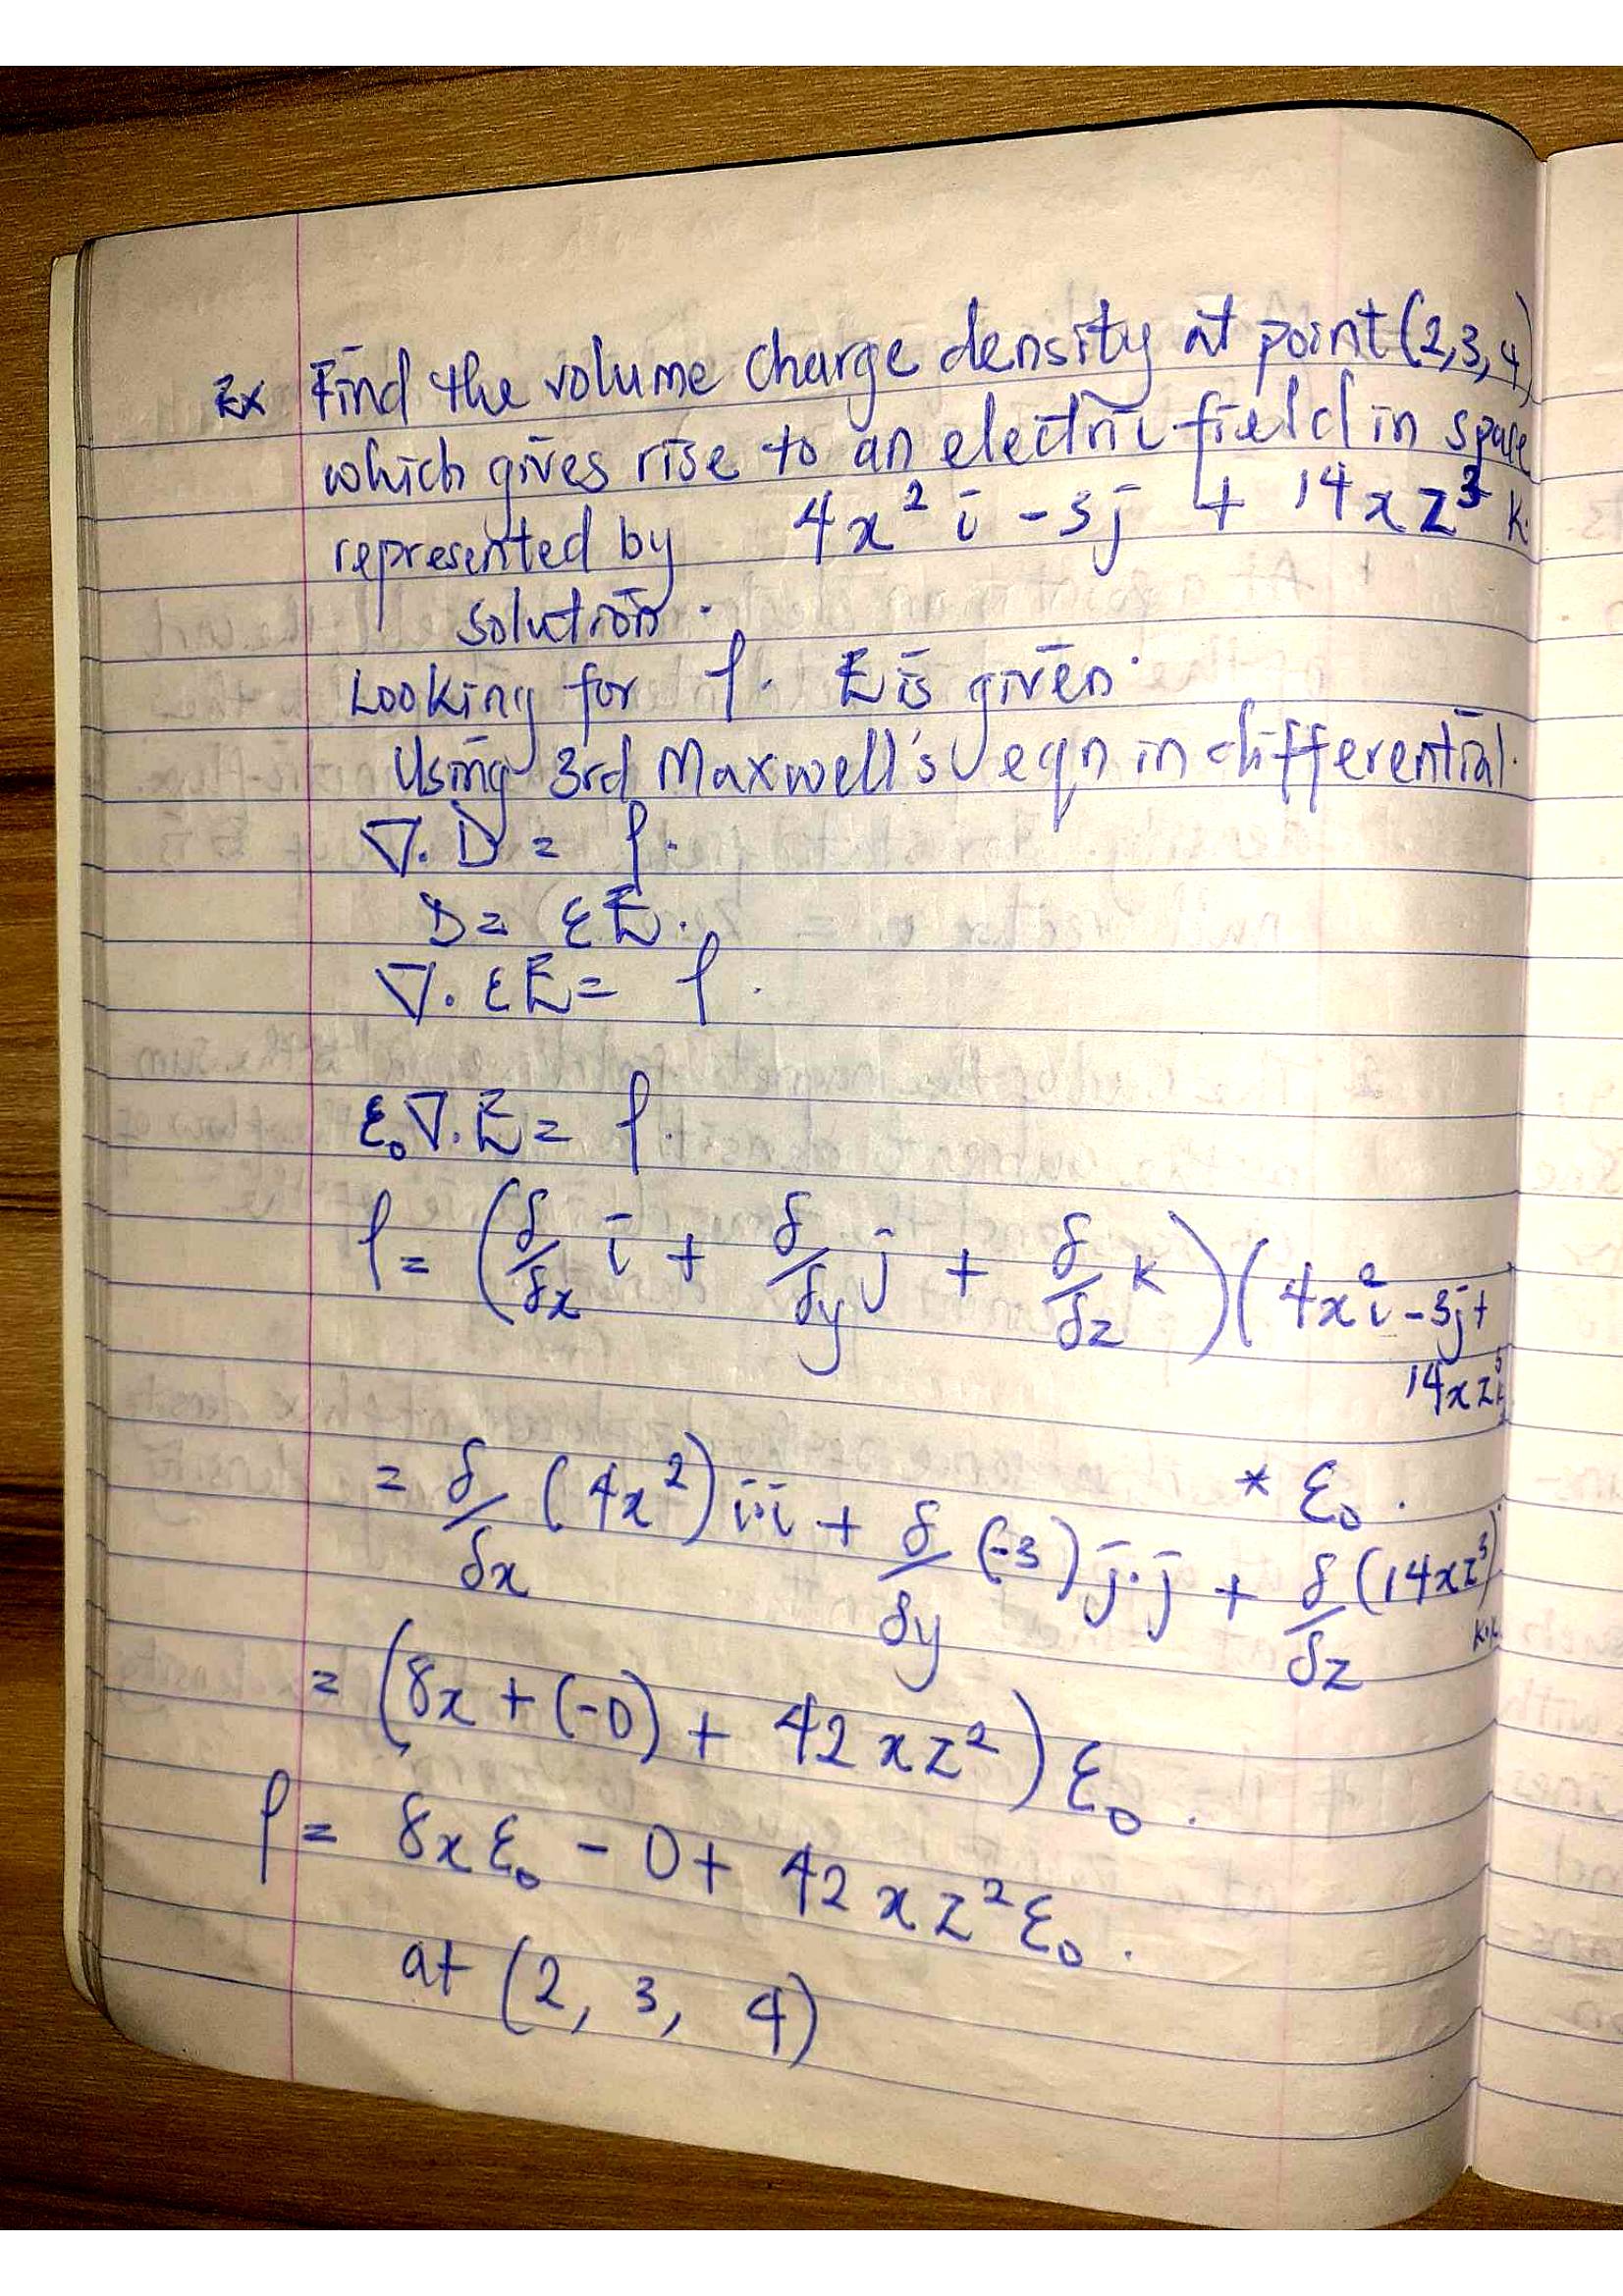 Ex Find the volume charge density at point (2,3,4)
which gives rise to an electric field in space
represented by 4x² i - 3j + 14xz³ k.
solution.
Looking for ρ. E is given.
Using 3rd Maxwell's eqn in differential.
∇. D = ρ.
D = εE.
∇. εE = ρ.
ε₀∇.E = ρ.
ρ = (δ/δx i + δ/δy j + δ/δz k)(4x²i - 3j +
14xz³k
* ε₀.
= δ/δx (4x²) i·i + δ/δy (-3) j·j + δ/δz (14xz³)
k·k
= (8x + (-0) + 42xz²) ε₀.
ρ = 8xε₀ - 0 + 42xz²ε₀.
at (2, 3, 4)